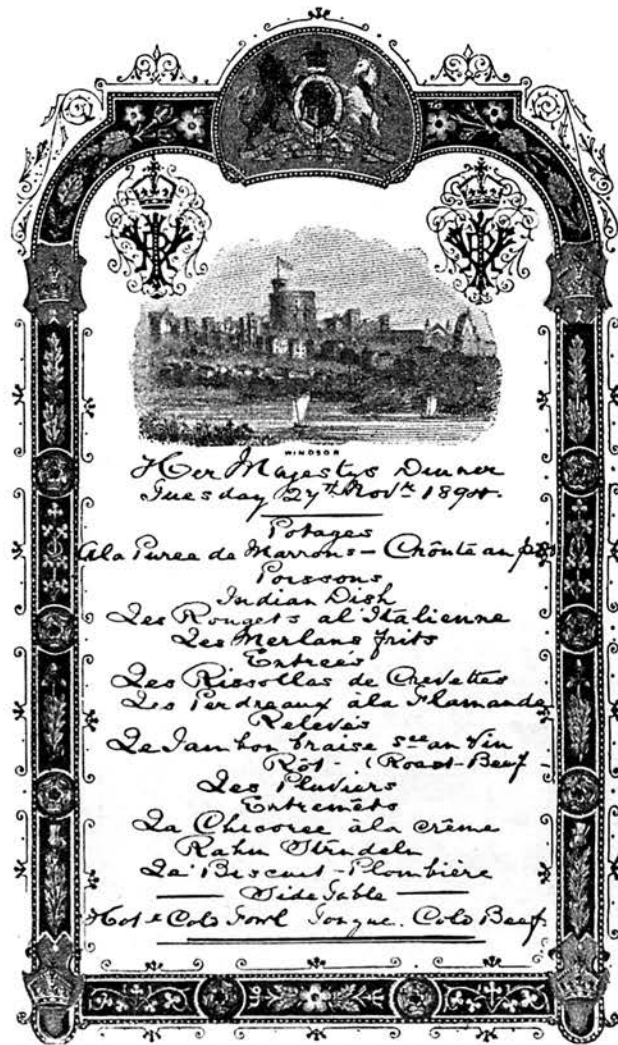 WINDSOR
Her Majestys Dinner
Tuesday 27th Novr 1894.
Potages
A la Puree de Marrons – Croûte au pot
Poissons
Indian Dish
Les Rougets al Italienne
Les Merlans frits
Entreés
Les Rissollas de Crevettes
Les Perdreaux à la Flamande
Relevés
Le Jambon braise sce au Vin
Rôt - (Roast-Beef -
Les Pluviers
Entremêts
La Chicoree à la crême
Rahm
Le Biscuit-Plombière
Side Table
Hot & Cold Fowl Tongue. Cold Beef